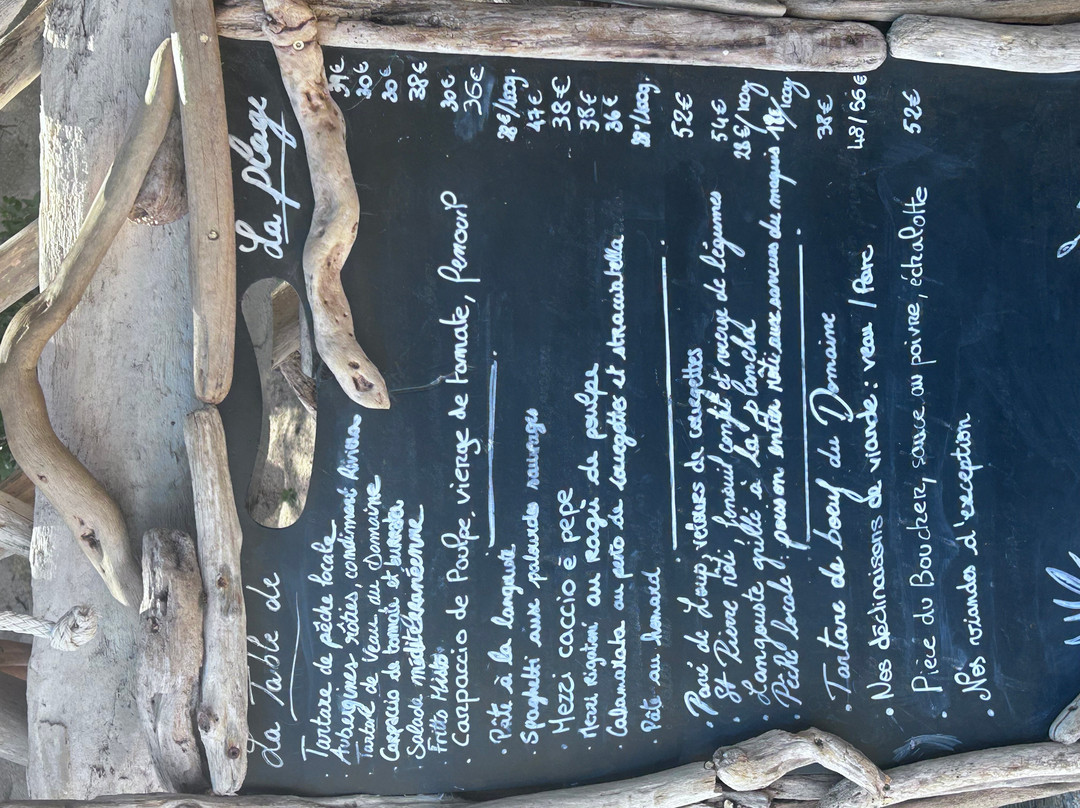 La Table de La plage
Tartare de pêche locale 34€
Aubergines rôties, condiment Riviera 30€
Tartare de Veau du Domaine
Carpaccio de tomate et burrata 30€
Salade méditerranéenne 38€
Fritto Misto 30€
Carpaccio de Poulpe, vierge de tomate, fenouil 36€
Pâte à la langouste 28€/100g.
Spaghetti aux palourdes sauvages 47€
Mezzi caccio e pepe 38€
Mezzi Rigatoni au Ragù de poulpe 38€
Calamarata au pesto de courgettes et straciatella 36€
Pâte au homard /100g.
Pavé de Loup, velours de courgettes 52€
St Pierre rôti, fenouil confit et vierge de légumes 54€
Langouste grillé à la plancha 28€/100g
Pêche locale, poisson entier rôti aux saveurs du maquis /100g
Tartare de boeuf du Domaine 38€
Nos déclinaisons de viande : veau / Porc 48/56€
Pièce du Boucher, sauce au poivre, échalotte 52€
Nos viandes d'exception